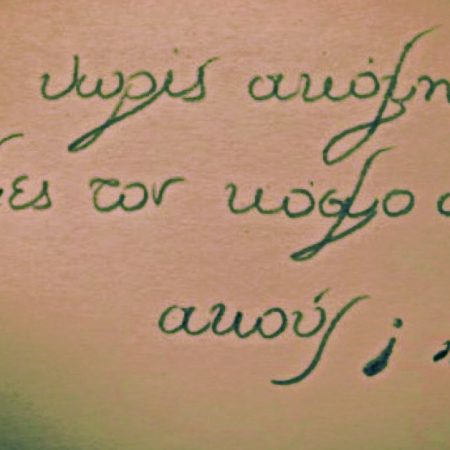 νωρίς ακόμη
ες τον κόσμο
ακούς;